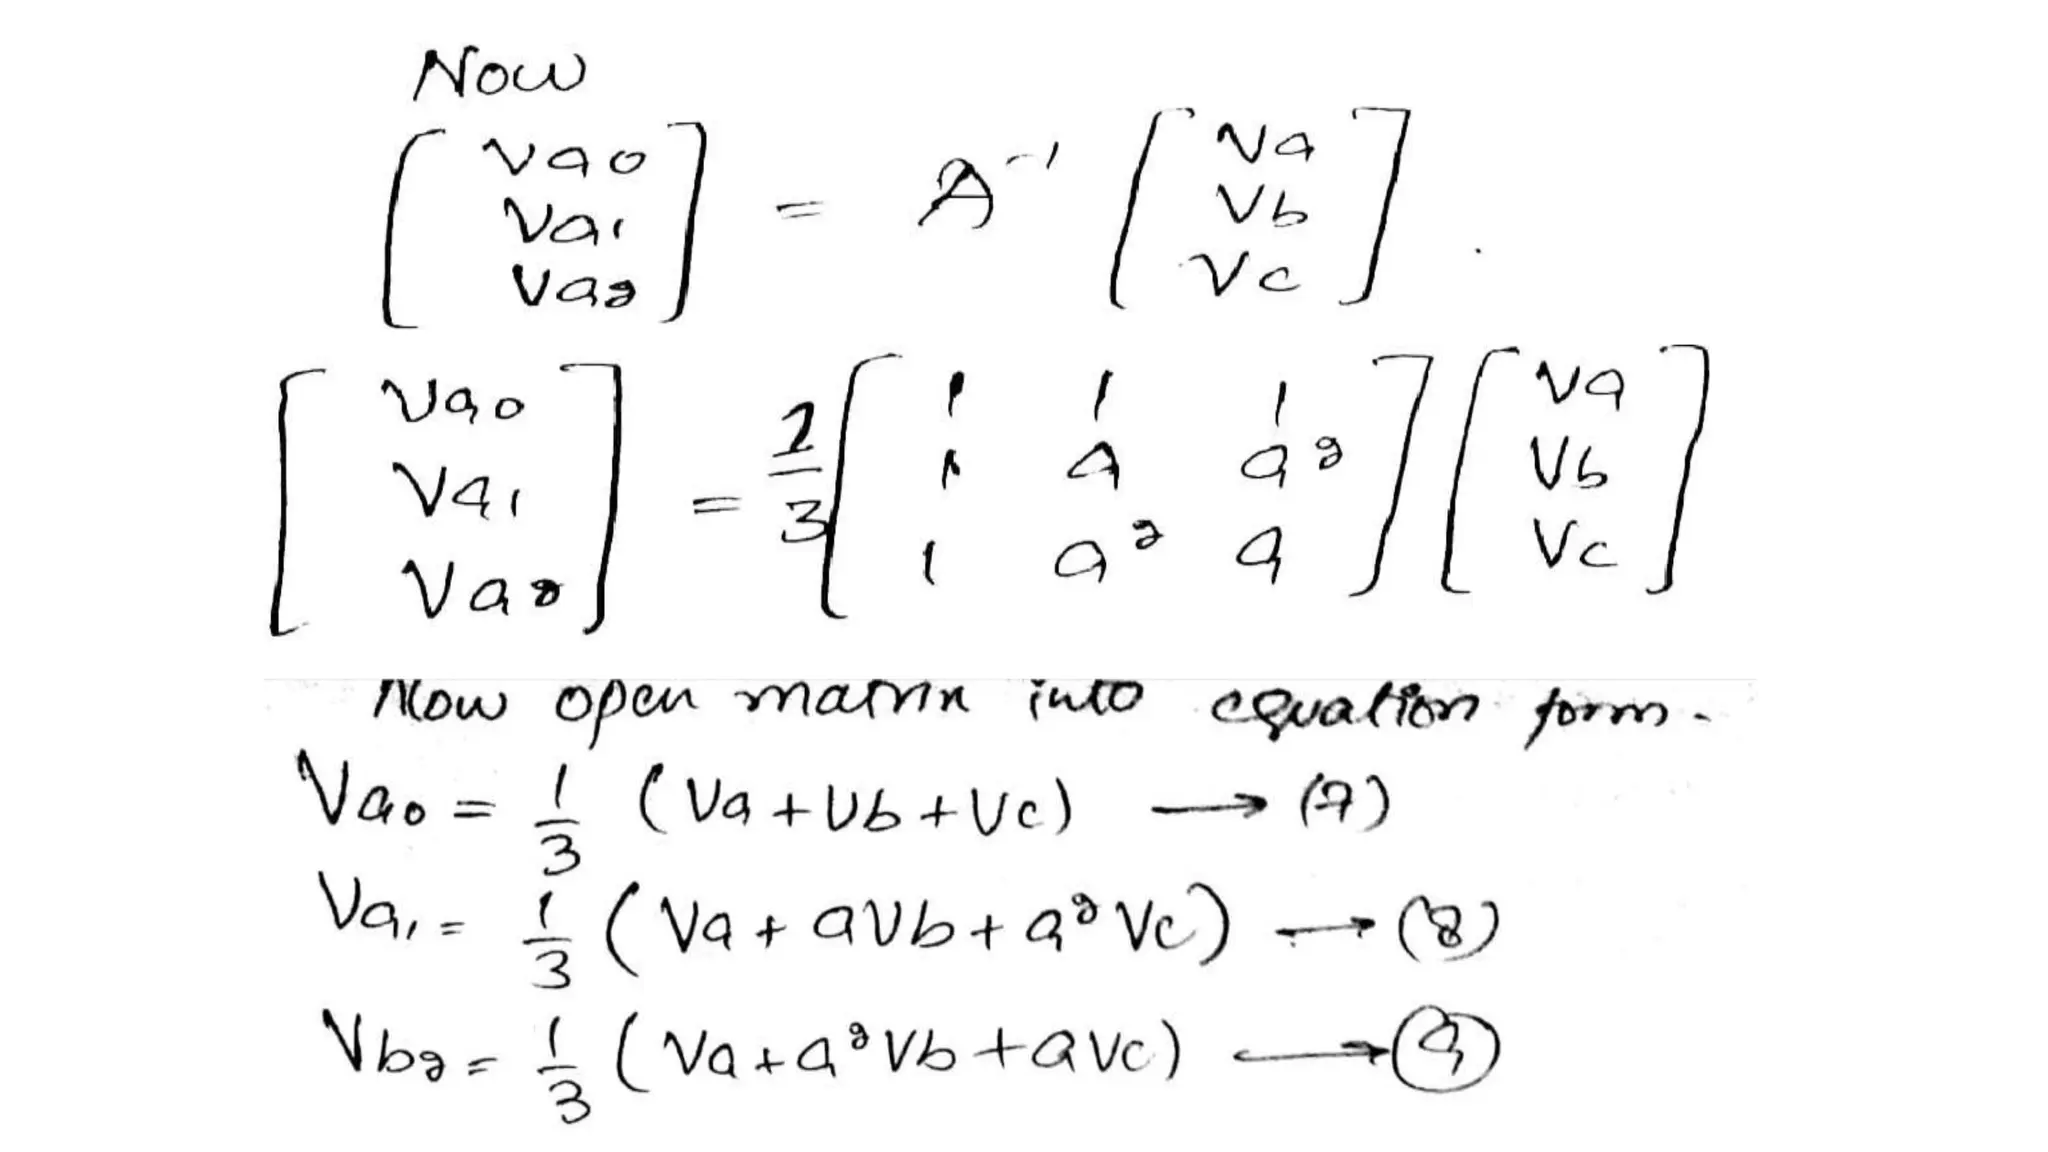 Now
[Va0 Va1 Va2] = A⁻¹ [Va Vb Vc]
[Va0 Va1 Va2] = 1/3 [1 1 1; 1 a a²; 1 a² a] [Va Vb Vc]
Now open matrix into equation form.
Va0 = 1/3 (Va + Vb + Vc) → (7)
Va1 = 1/3 (Va + aVb + a² Vc) → (8)
Vb2 = 1/3 (Va + a² Vb + aVc) → (9)